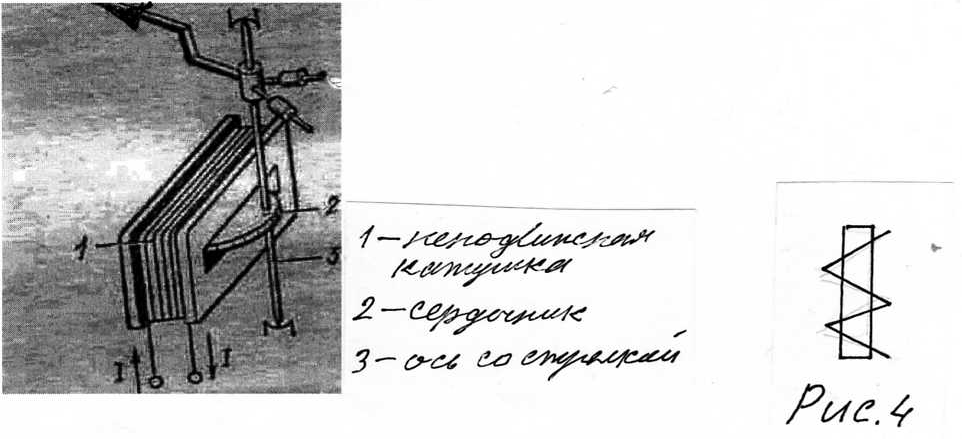 1
2
3
I
I
1 – неподвижная
катушка
2 – сердечник
3 – ось со стрелкой
Рис. 4